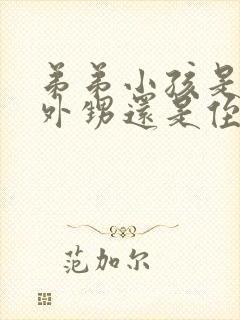 弟弟小孩是
外甥還是侄
范加尔